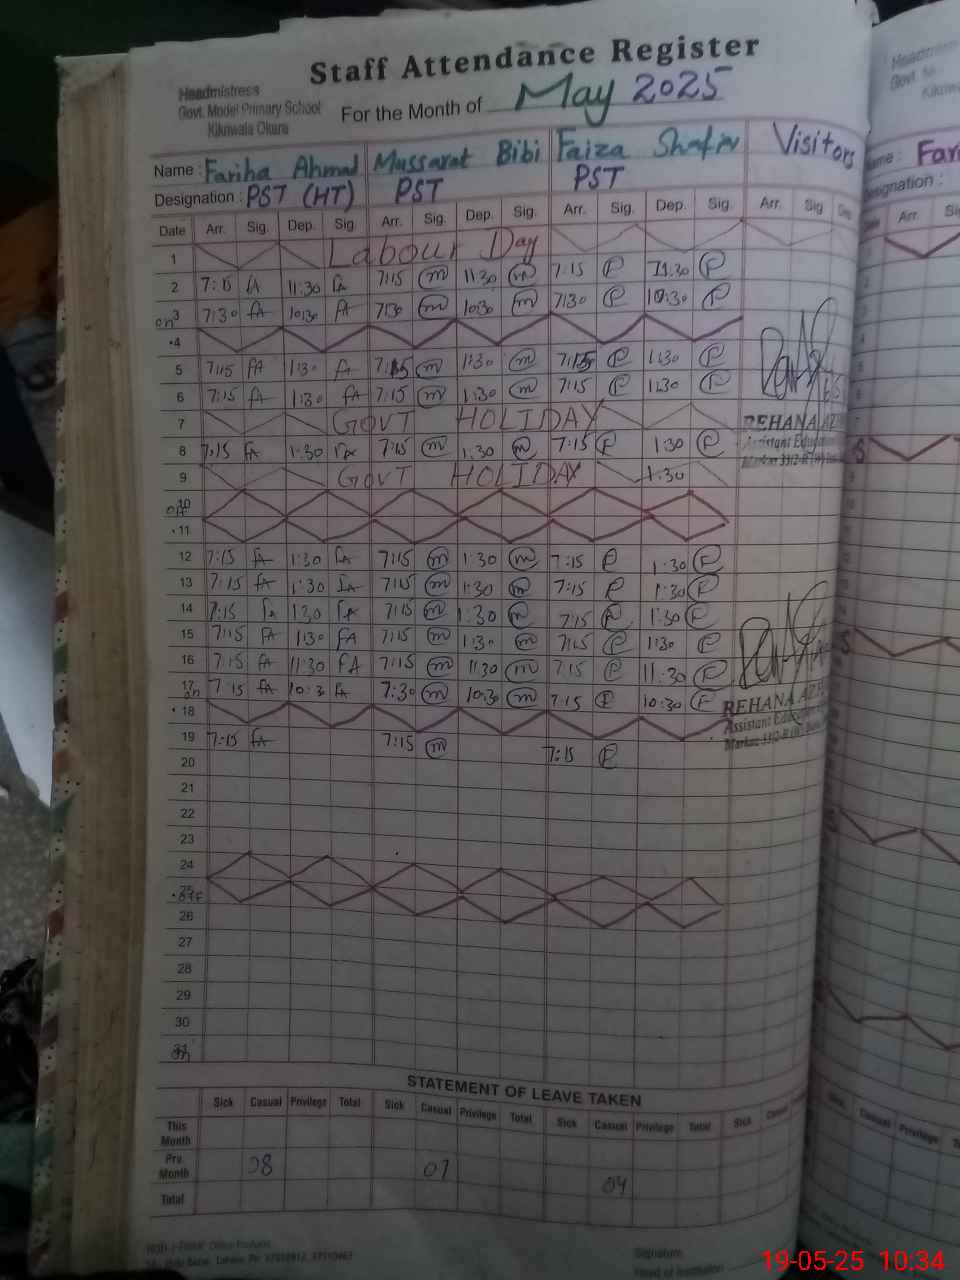 Staff Attendance Register
Headmistress
Govt. Model Primary School
Kikuwala Okara
For the Month of May 2025
Name : Fariha Ahmad Mussarat Bibi Faiza Shafiq Visitors
Designation : PST (HT) PST PST
Date Arr. Sig. Dep. Sig. Arr. Sig. Dep. Sig. Arr. Sig. Dep. Sig. Arr. Sig Dep
1 Labour Day
2 7:15 FA 11:30 FA 7:15 m 11:30 m 7:15 F 11:30 F
on 3 7:30 FA 10:30 FA 7:30 m 10:30 m 7:30 F 10:30 F
4
5 7:15 FA 1:30 FA 7:15 m 1:30 m 7:15 F 1:30 F
6 7:15 FA 1:30 FA 7:15 m 1:30 m 7:15 F 1:30 F
7 GOVT HOLIDAY
8 7:15 FA 1:30 FA 7:15 m 1:30 m 7:15 F 1:30 F
9 GOVT HOLIDAY 1:30
10 off
11
12 7:15 FA 1:30 FA 7:15 m 1:30 m 7:15 F 1:30 F
13 7:15 FA 1:30 FA 7:15 m 1:30 m 7:15 F 1:30 F
14 7:15 FA 1:30 FA 7:15 m 1:30 m 7:15 F 1:30 F
15 7:15 FA 1:30 FA 7:15 m 1:30 m 7:15 F 1:30 F
16 7:15 FA 11:30 FA 7:15 m 11:30 m 7:15 F 11:30 F
17 on 7:15 FA 10:3 FA 7:30 m 10:30 m 7:15 F 10:30 F
18
19 7:15 FA 7:15 m 7:15 F
20
21
22
23
24
25 off
26
27
28
29
30
31
REHANA AZ
Assistant Educa
Markaz 33/2-R (W)
REHANA AZ
Assistant Educa
Markaz 33/2-R (W)
STATEMENT OF LEAVE TAKEN
Sick Casual Privilege Total Sick Casual Privilege Total Sick Casual Privilege Total Sick Casual
This Month
Pre. Month 08 07 04
Total
Signature
Head of Institution
19-05-25 10:34